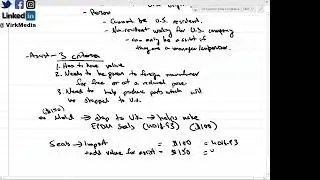 Linked in
@VirkMedia
- Person
- Cannot be U.S. resident.
- Non-resident working for U.S. company
- can only be assist if
they are a manager/supervisor.
- Assist - 3 criteria
1. Has to have value
2. Needs to be given to foreign manufacturer
for free or at a reduced price
3. Need to help produce parts which will
be shipped to U.S.
($150)
Mold → ship to UK → helps make
EPDM Seals (4016.93) ($100)
Seals → Import = $100 = 4016.93
add value for assist = $150 = "